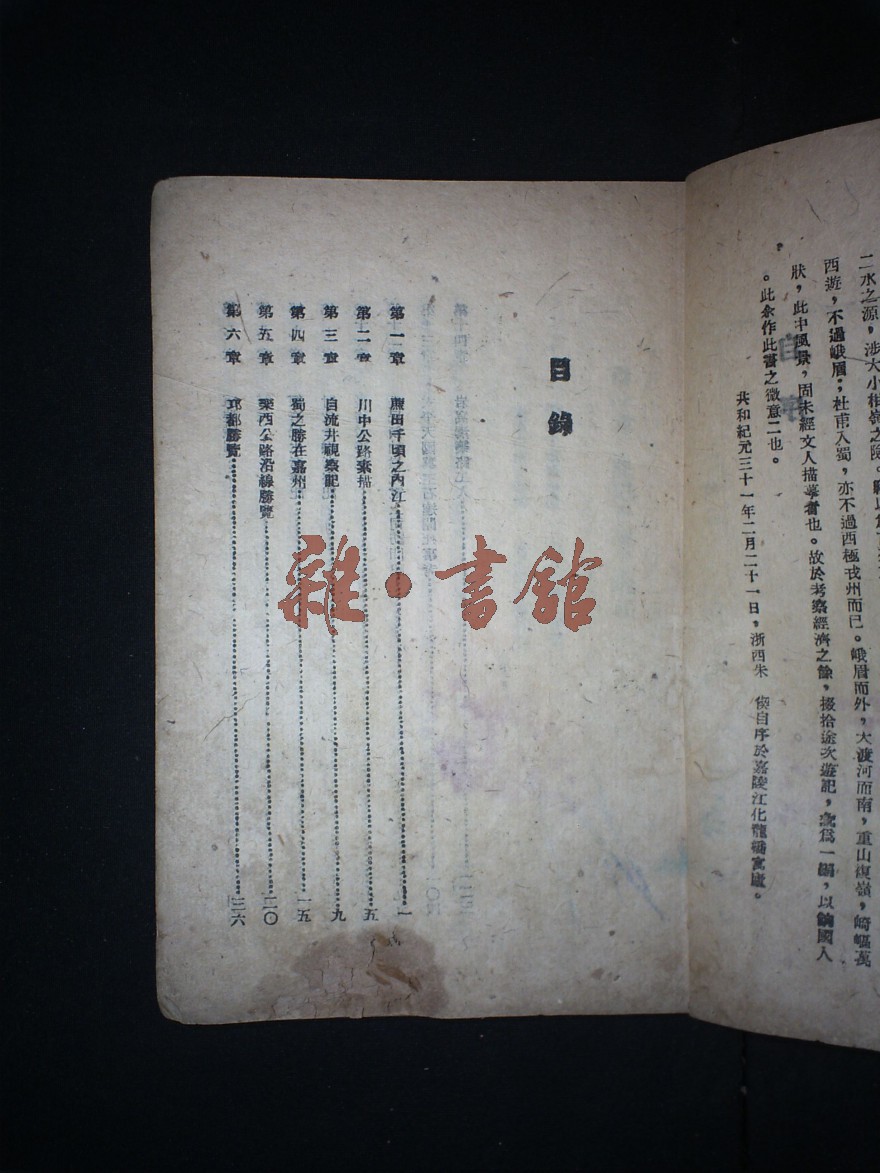 二水之源，涉大小相嶺之險。
西遊，不過峨眉；杜甫入蜀，亦不過西極戎州而已。峨眉而外，大渡河而南，重山複嶺，崎嶇萬
狀，此中風景，固未經文人描摹者也。故於考察經濟之餘，掇拾途次遊記，彙爲一編，以餉國人
。此余作此書之微意二也。
共和紀元三十一年二月二十一日，浙西朱 偰自序於嘉陵江化龍橋寓廬。
自序
目錄
第一章 蔗田千頃之內江 一
第二章 川中公路素描 五
第三章 自流井視察記 九
第四章 蜀之勝在嘉州 一五
第五章 樂西公路沿線勝覽 二〇
第六章 邛都勝覽 三六
雜·書館